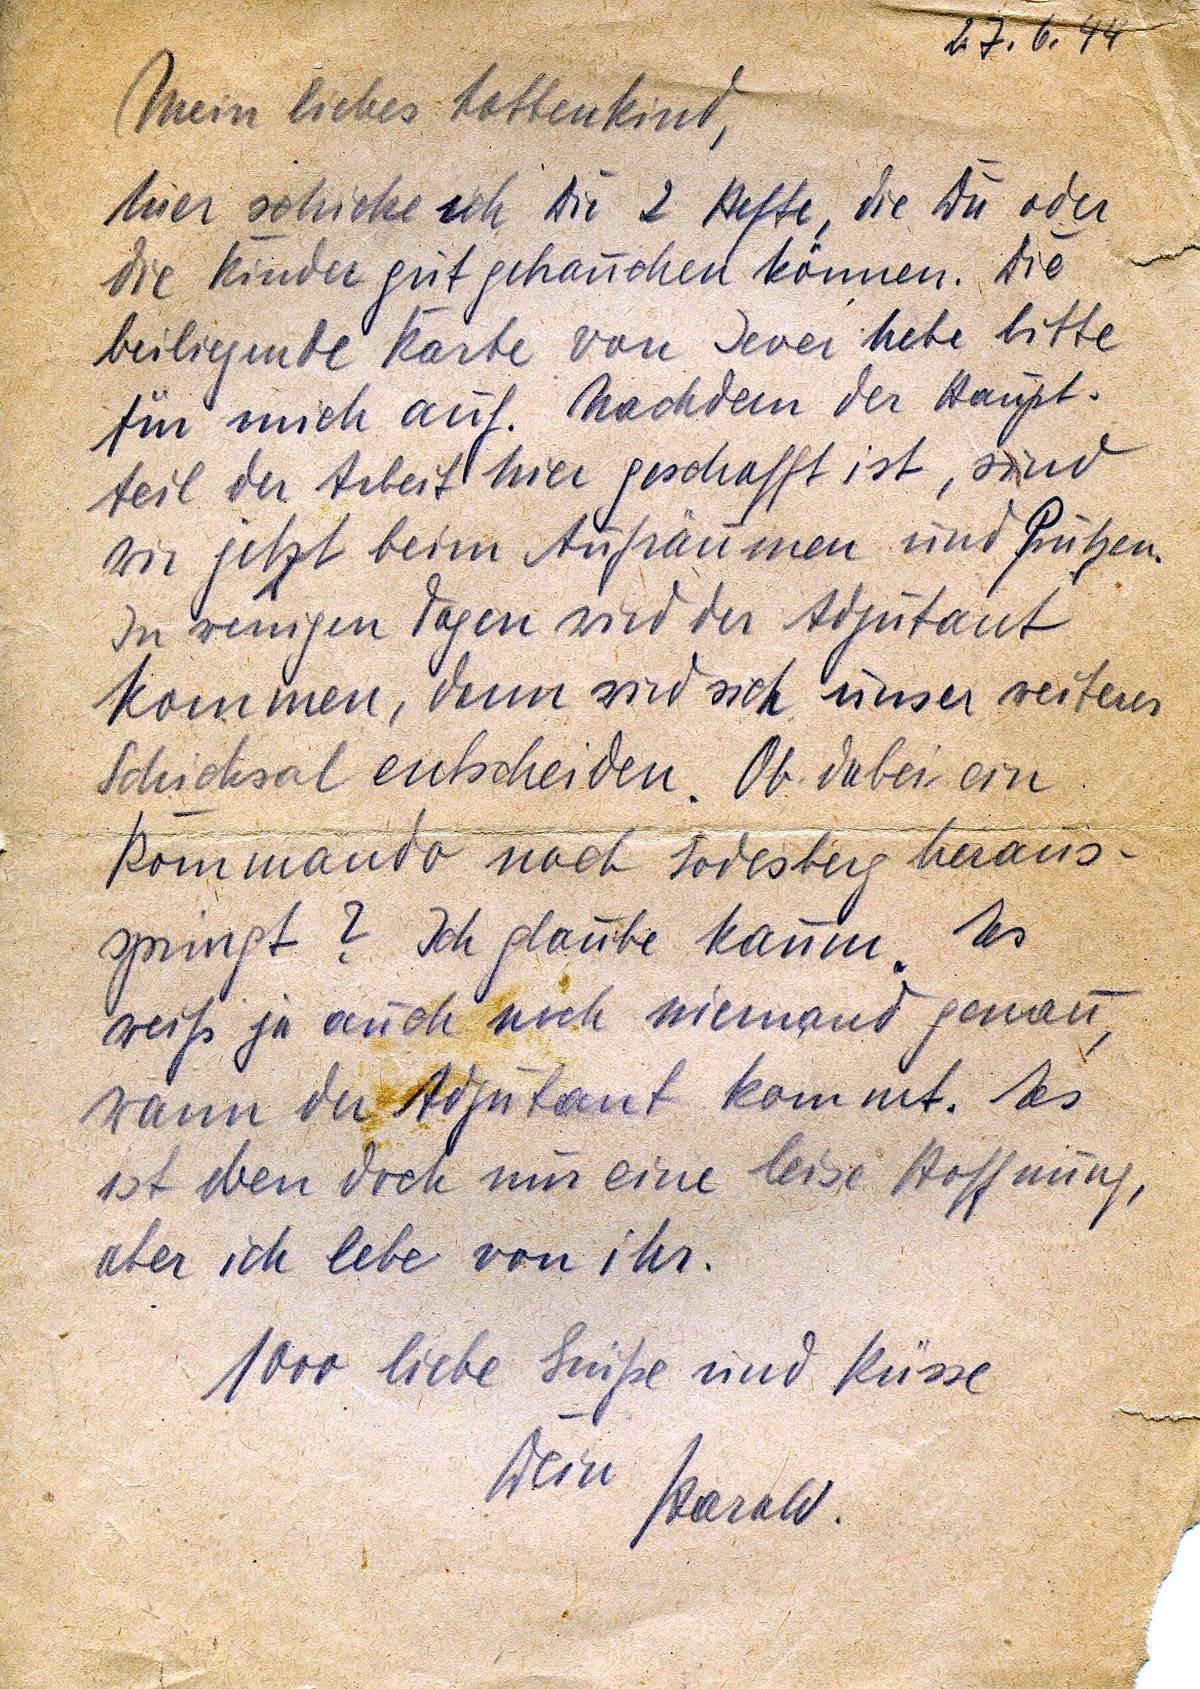 27. 6. 44
Mein liebes Lottenkind,
hier schicke ich Dir 2 Hefte, die Du oder
die Kinder gut gebrauchen können. Die
beiliegende Karte von Jever hebe bitte
für mich auf. Nachdem der Haupt-
teil der Arbeit hier geschafft ist, sind
wir jetzt beim Aufräumen und Putzen.
In wenigen Tagen wird der Adjutant
kommen, dann wird sich unser weiteres
Schicksal entscheiden. Ob dabei ein
Kommando nach Godesberg heraus-
springt? Ich glaube kaum. Es
weiß ja auch noch niemand genau,
wann der Adjutant kommt. Es
ist eben doch nur eine leise Hoffnung,
aber ich lebe von ihr.
1000 liebe Grüße und Küsse
Dein Harald.